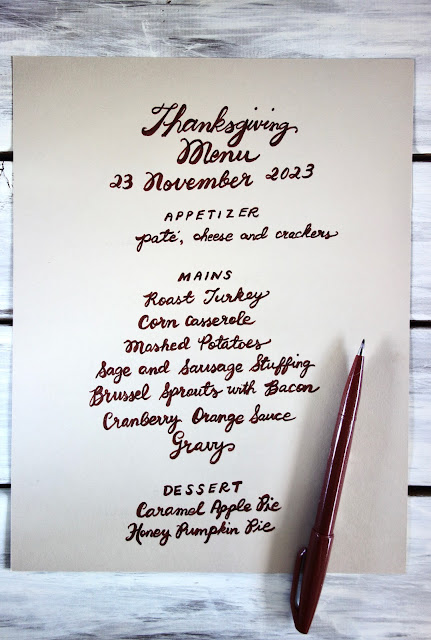 Thanksgiving
Menu
23 November 2023
APPETIZER
paté, cheese and crackers
MAINS
Roast Turkey
Corn Casserole
Mashed Potatoes
Sage and Sausage Stuffing
Brussel Sprouts with Bacon
Cranberry Orange Sauce
Gravy
DESSERT
Caramel Apple Pie
Honey Pumpkin Pie